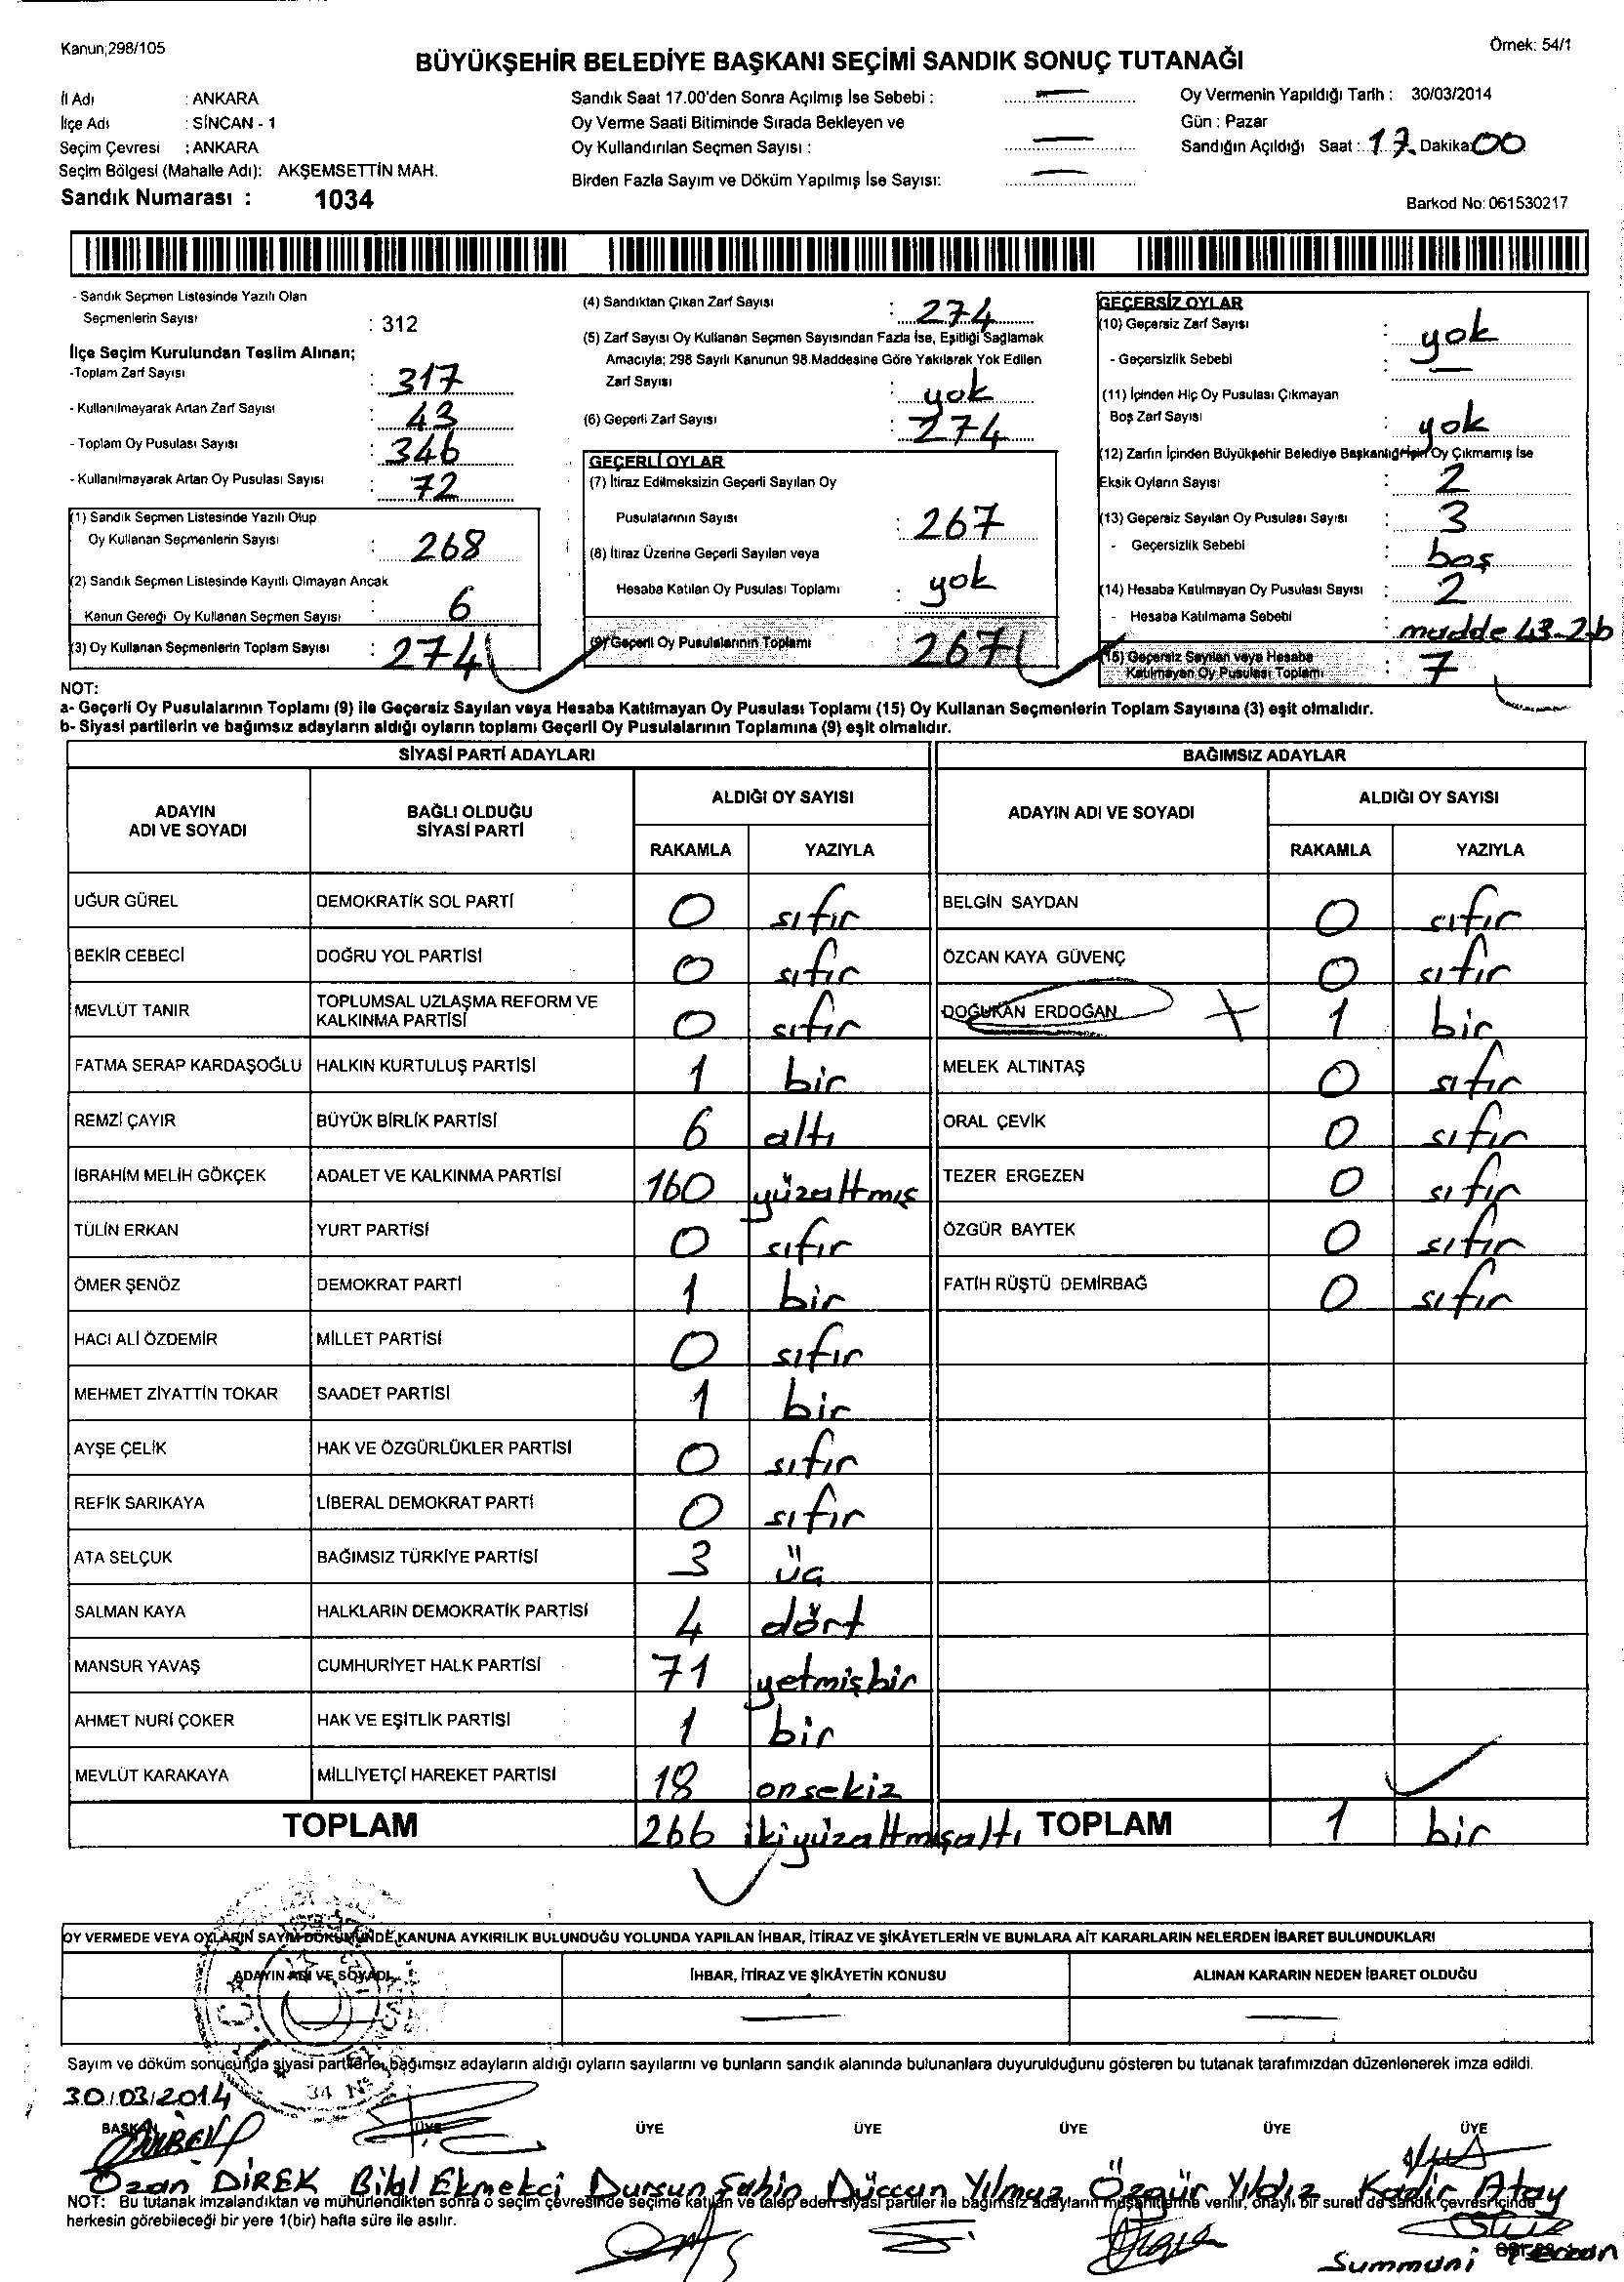 Kanun;298/105
Örnek: 54/1
BÜYÜKŞEHİR BELEDİYE BAŞKANI SEÇİMİ SANDIK SONUÇ TUTANAĞI
İl Adı : ANKARA
İlçe Adı : SİNCAN - 1
Seçim Çevresi : ANKARA
Seçim Bölgesi (Mahalle Adı): AKŞEMSETTİN MAH.
Sandık Numarası : 1034
Sandık Saat 17.00'den Sonra Açılmış İse Sebebi : —
Oy Verme Saati Bitiminde Sırada Bekleyen ve
Oy Kullandırılan Seçmen Sayısı : —
Birden Fazla Sayım ve Döküm Yapılmış İse Sayısı: —
Oy Vermenin Yapıldığı Tarih : 30/03/2014
Gün : Pazar
Sandığın Açıldığı Saat : 17 Dakika: 00
Barkod No: 061530217
- Sandık Seçmen Listesinde Yazılı Olan
Seçmenlerin Sayısı : 312
İlçe Seçim Kurulundan Teslim Alınan;
-Toplam Zarf Sayısı : 317
- Kullanılmayarak Artan Zarf Sayısı : 43
- Toplam Oy Pusulası Sayısı : 346
- Kullanılmayarak Artan Oy Pusulası Sayısı : 72
(1) Sandık Seçmen Listesinde Yazılı Olup
Oy Kullanan Seçmenlerin Sayısı : 268
(2) Sandık Seçmen Listesinde Kayıtlı Olmayan Ancak
Kanun Gereği Oy Kullanan Seçmen Sayısı : 6
(3) Oy Kullanan Seçmenlerin Toplam Sayısı : 274
(4) Sandıktan Çıkan Zarf Sayısı : 274
(5) Zarf Sayısı Oy Kullanan Seçmen Sayısından Fazla İse, Eşitliği Sağlamak
Amacıyla; 298 Sayılı Kanunun 98.Maddesine Göre Yakılarak Yok Edilen
Zarf Sayısı : yok
(6) Geçerli Zarf Sayısı : 274
GEÇERLİ OYLAR
(7) İtiraz Edilmeksizin Geçerli Sayılan Oy
Pusulalarının Sayısı : 267
(8) İtiraz Üzerine Geçerli Sayılan veya
Hesaba Katılan Oy Pusulası Toplamı : yok
(9) Geçerli Oy Pusulalarının Toplamı 267
GEÇERSİZ OYLAR
(10) Geçersiz Zarf Sayısı : yok
- Geçersizlik Sebebi : —
(11) İçinden Hiç Oy Pusulası Çıkmayan
Boş Zarf Sayısı : yok
(12) Zarfın İçinden Büyükşehir Belediye Başkanlığı İçin Oy Çıkmamış İse
Eksik Oyların Sayısı : 2
(13) Geçersiz Sayılan Oy Pusulası Sayısı : 3
- Geçersizlik Sebebi : boş
(14) Hesaba Katılmayan Oy Pusulası Sayısı : 2
- Hesaba Katılmama Sebebi : madde 43-2b
(15) Geçersiz Sayılan veya Hesaba
Katılmayan Oy Pusulası Toplamı : 7
NOT:
a- Geçerli Oy Pusulalarının Toplamı (9) ile Geçersiz Sayılan veya Hesaba Katılmayan Oy Pusulası Toplamı (15) Oy Kullanan Seçmenlerin Toplam Sayısına (3) eşit olmalıdır.
b- Siyasi partilerin ve bağımsız adayların aldığı oyların toplamı Geçerli Oy Pusulalarının Toplamına (9) eşit olmalıdır.
SİYASİ PARTİ ADAYLARI BAĞIMSIZ ADAYLAR
ADAYIN ADI VE SOYADI BAĞLI OLDUĞU SİYASİ PARTİ ALDIĞI OY SAYISI ADAYIN ADI VE SOYADI ALDIĞI OY SAYISI
RAKAMLA YAZIYLA RAKAMLA YAZIYLA
UĞUR GÜREL DEMOKRATİK SOL PARTİ 0 sıfır BELGİN SAYDAN 0 sıfır
BEKİR CEBECİ DOĞRU YOL PARTİSİ 0 sıfır ÖZCAN KAYA GÜVENÇ 0 sıfır
MEVLÜT TANIR TOPLUMSAL UZLAŞMA REFORM VE KALKINMA PARTİSİ 0 sıfır DOĞUKAN ERDOĞAN 1 bir
FATMA SERAP KARDAŞOĞLU HALKIN KURTULUŞ PARTİSİ 1 bir MELEK ALTINTAŞ 0 sıfır
REMZİ ÇAYIR BÜYÜK BİRLİK PARTİSİ 6 altı ORAL ÇEVİK 0 sıfır
İBRAHİM MELİH GÖKÇEK ADALET VE KALKINMA PARTİSİ 160 yüzaltmış TEZER ERGEZEN 0 sıfır
TÜLİN ERKAN YURT PARTİSİ 0 sıfır ÖZGÜR BAYTEK 0 sıfır
ÖMER ŞENÖZ DEMOKRAT PARTİ 1 bir FATİH RÜŞTÜ DEMİRBAĞ 0 sıfır
HACI ALİ ÖZDEMİR MİLLET PARTİSİ 0 sıfır
MEHMET ZİYATTİN TOKAR SAADET PARTİSİ 1 bir
AYŞE ÇELİK HAK VE ÖZGÜRLÜKLER PARTİSİ 0 sıfır
REFİK SARIKAYA LİBERAL DEMOKRAT PARTİ 0 sıfır
ATA SELÇUK BAĞIMSIZ TÜRKİYE PARTİSİ 3 üç
SALMAN KAYA HALKLARIN DEMOKRATİK PARTİSİ 4 dört
MANSUR YAVAŞ CUMHURİYET HALK PARTİSİ 71 yetmişbir
AHMET NURİ ÇOKER HAK VE EŞİTLİK PARTİSİ 1 bir
MEVLÜT KARAKAYA MİLLİYETÇİ HAREKET PARTİSİ 18 onsekiz
TOPLAM 266 ikiyüzaltmışaltı TOPLAM 1 bir
OY VERMEDE VEYA OYLARIN SAYIM DÖKÜMÜNDE KANUNA AYKIRILIK BULUNDUĞU YOLUNDA YAPILAN İHBAR, İTİRAZ VE ŞİKÂYETLERİN VE BUNLARA AİT KARARLARIN NELERDEN İBARET BULUNDUKLARI
ADAYIN ADI VE SOYADI İHBAR, İTİRAZ VE ŞİKÂYETİN KONUSU ALINAN KARARIN NEDEN İBARET OLDUĞU
— —
Sayım ve döküm sonucunda siyasi partilerle, bağımsız adayların aldığı oyların sayılarını ve bunların sandık alanında bulunanlara duyurulduğunu gösteren bu tutanak tarafımızdan düzenlenerek imza edildi.
30/03/2014
BAŞKAN ÜYE ÜYE ÜYE ÜYE ÜYE ÜYE
Ozan DİREK Bilal Ekmekci Dursun Şahin Düccan Yılmaz Özgür Yıldız Kadir Atay
NOT: Bu tutanak imzalandıktan ve mühürlendikten sonra o seçim çevresinde seçime katılan ve talep eden siyasi partiler ile bağımsız adayların müşahitlerine verilir, onaylı bir sureti de sandık çevresi içinde
herkesin görebileceği bir yere 1(bir) hafta süre ile asılır.
Summani